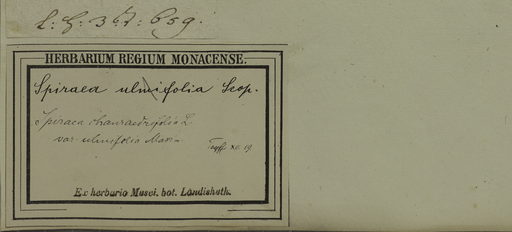 HERBARIUM REGIUM MONACENSE.
Spiraea ulmifolia Scop.
Spiraea chamaedrifolia L
var. ulmifolia Maxim
XII. 19.
Ex herbario Musei. bot. Landishuth.